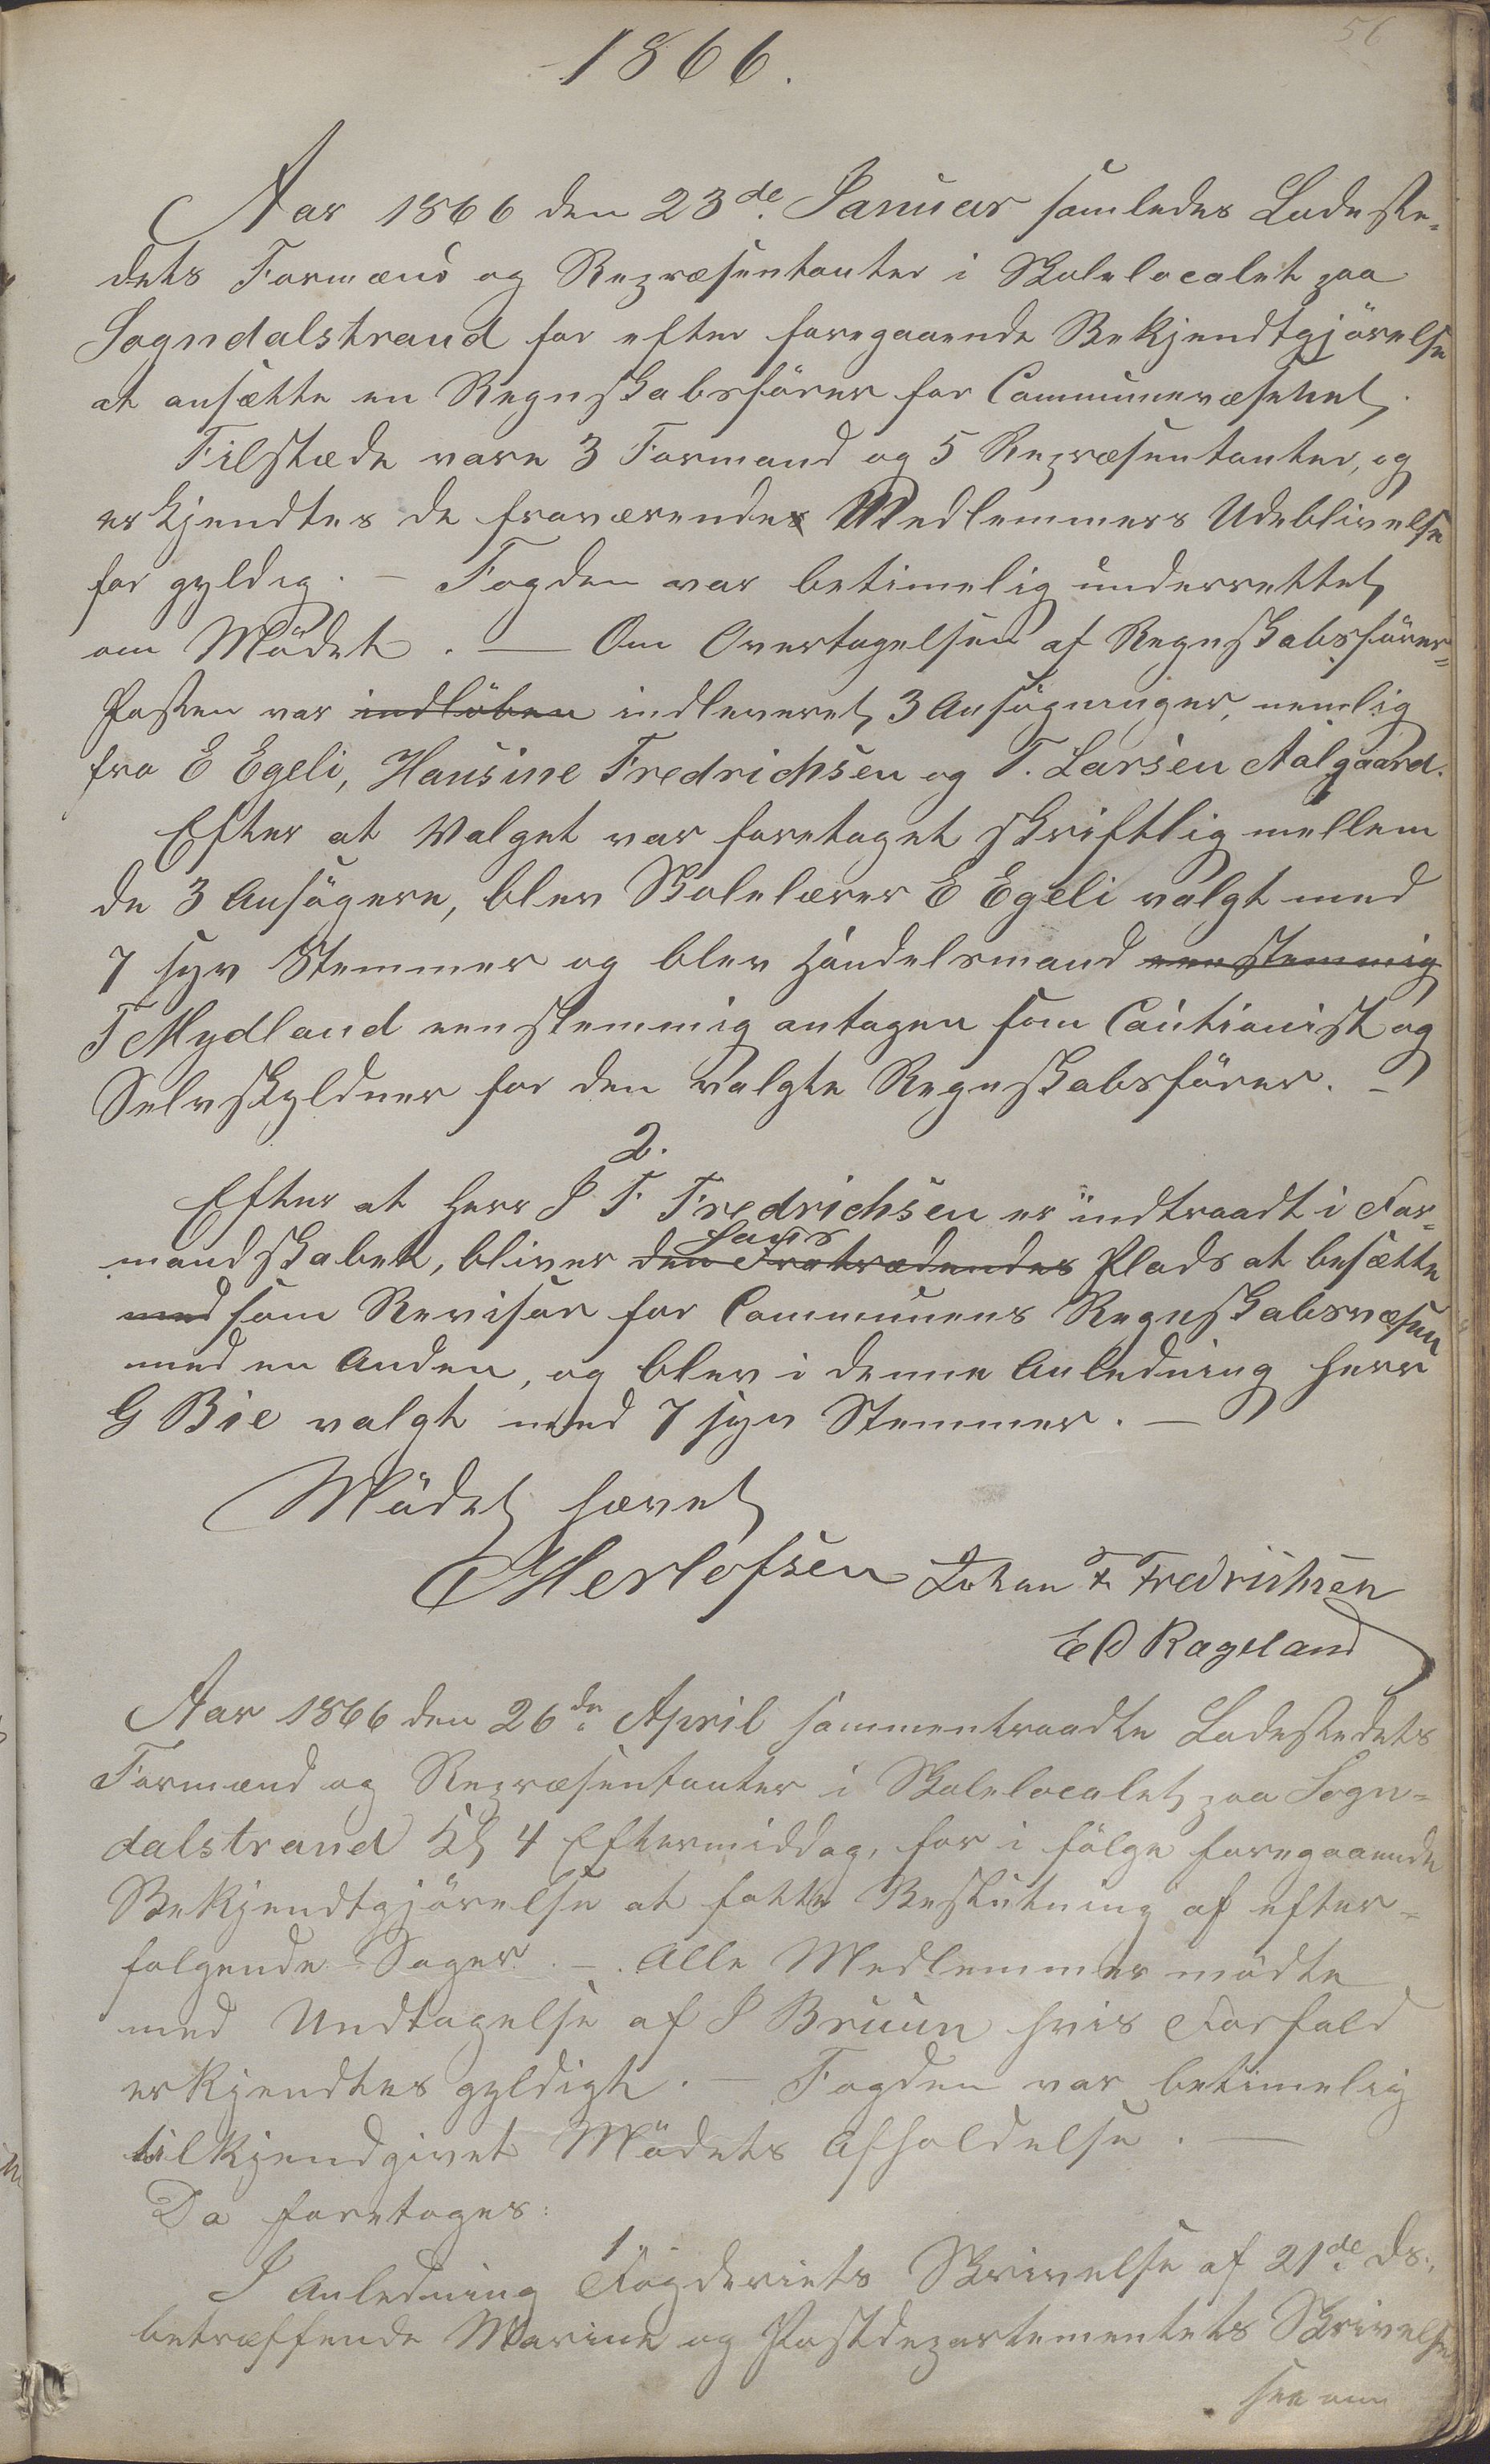 56
1866.
Aar 1866 den 23de Januar samledes Ladeste-
dets Formænd og Repræsentanter i Skolelocalet paa
Sogndalstrand for efter foregaaende Bekjendtgjörelse
at ansætte en Regnskabsförer for Communevæsenet.
Tilstæde vare 3 Formænd og 5 Repræsentanter, og
erkjendtes de fraværende Medlemmers Udeblivelse
for gyldig. – Fogden var betimelig underrettet
om Mödet. – Om Overtagelsen af Regnskabsförer-
Posten var indlöben indleveret 3 Ansögninger, nemlig
fra E Egeli, Hansine Fredrichsen og T. Larsen Aalgaard.
Efter at Valget var foretaget skriftlig mellem
de 3 Ansögere, blev Skolelærer E Egeli valgt med
7 syv Stemmer og blev Handelsmand eenstemmig
T Mydland eenstemmig antagen som Cautionist og
Selvskyldner for den valgte Regnskabsförer. –
2.
Efter at Herr J F Fredrichsen er indtraadt i For-
mandskabet, bliver den Fratrædendes Hans Plads at besætte
med som Revisor for Communens Regnskabsvæsen
med en Anden, og blev i denne Anledning Herr
G Bie valgt med 7 syv Stemmer. –
Mödet hævet
Herlofsen Johan F. Fredrichsen
E O Rageland
Aar 1866 den 26de April sammentraadte Ladestedets
Formænd og Repræsentanter i Skolelocalet paa Sogn-
dalstrand Kl 4 Eftermiddag, for i fölge foregaaende
Bekjendtgjörelse at fatte Beslutning af efter-
fölgende Sager. – Alle Medlemmer mödte
med Undtagelse af J Bruun hvis Forfald
erkjendtes gyldigt. – Fogden var betimelig
tilkjendgivet Mödets Afholdelse. –
Da foretoges:
1.
I Anledning Fogderiets Skrivelse af 21de ds.,
betræffende Marine og Postdepartementets Skrivelse